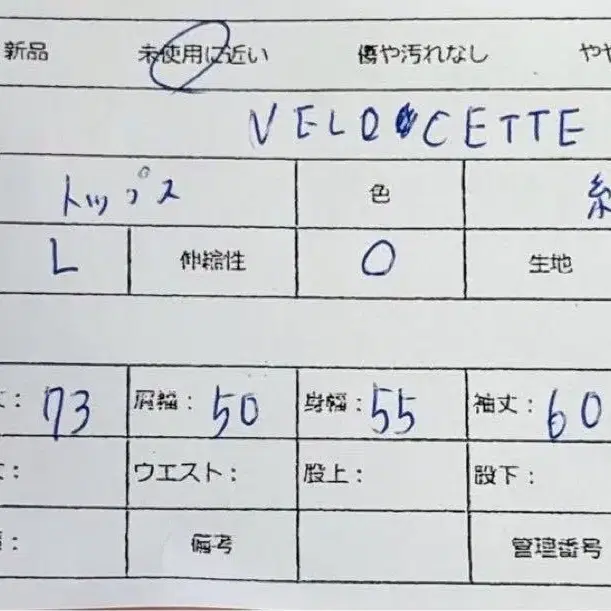 新品 未使用に近い 傷や汚れなし やや
VELOCETTE
トップス 色
L 伸縮性 O 生地
丈: 73 肩幅: 50 身幅: 55 袖丈: 60
ウエスト: 股上: 股下:
備考 管理番号